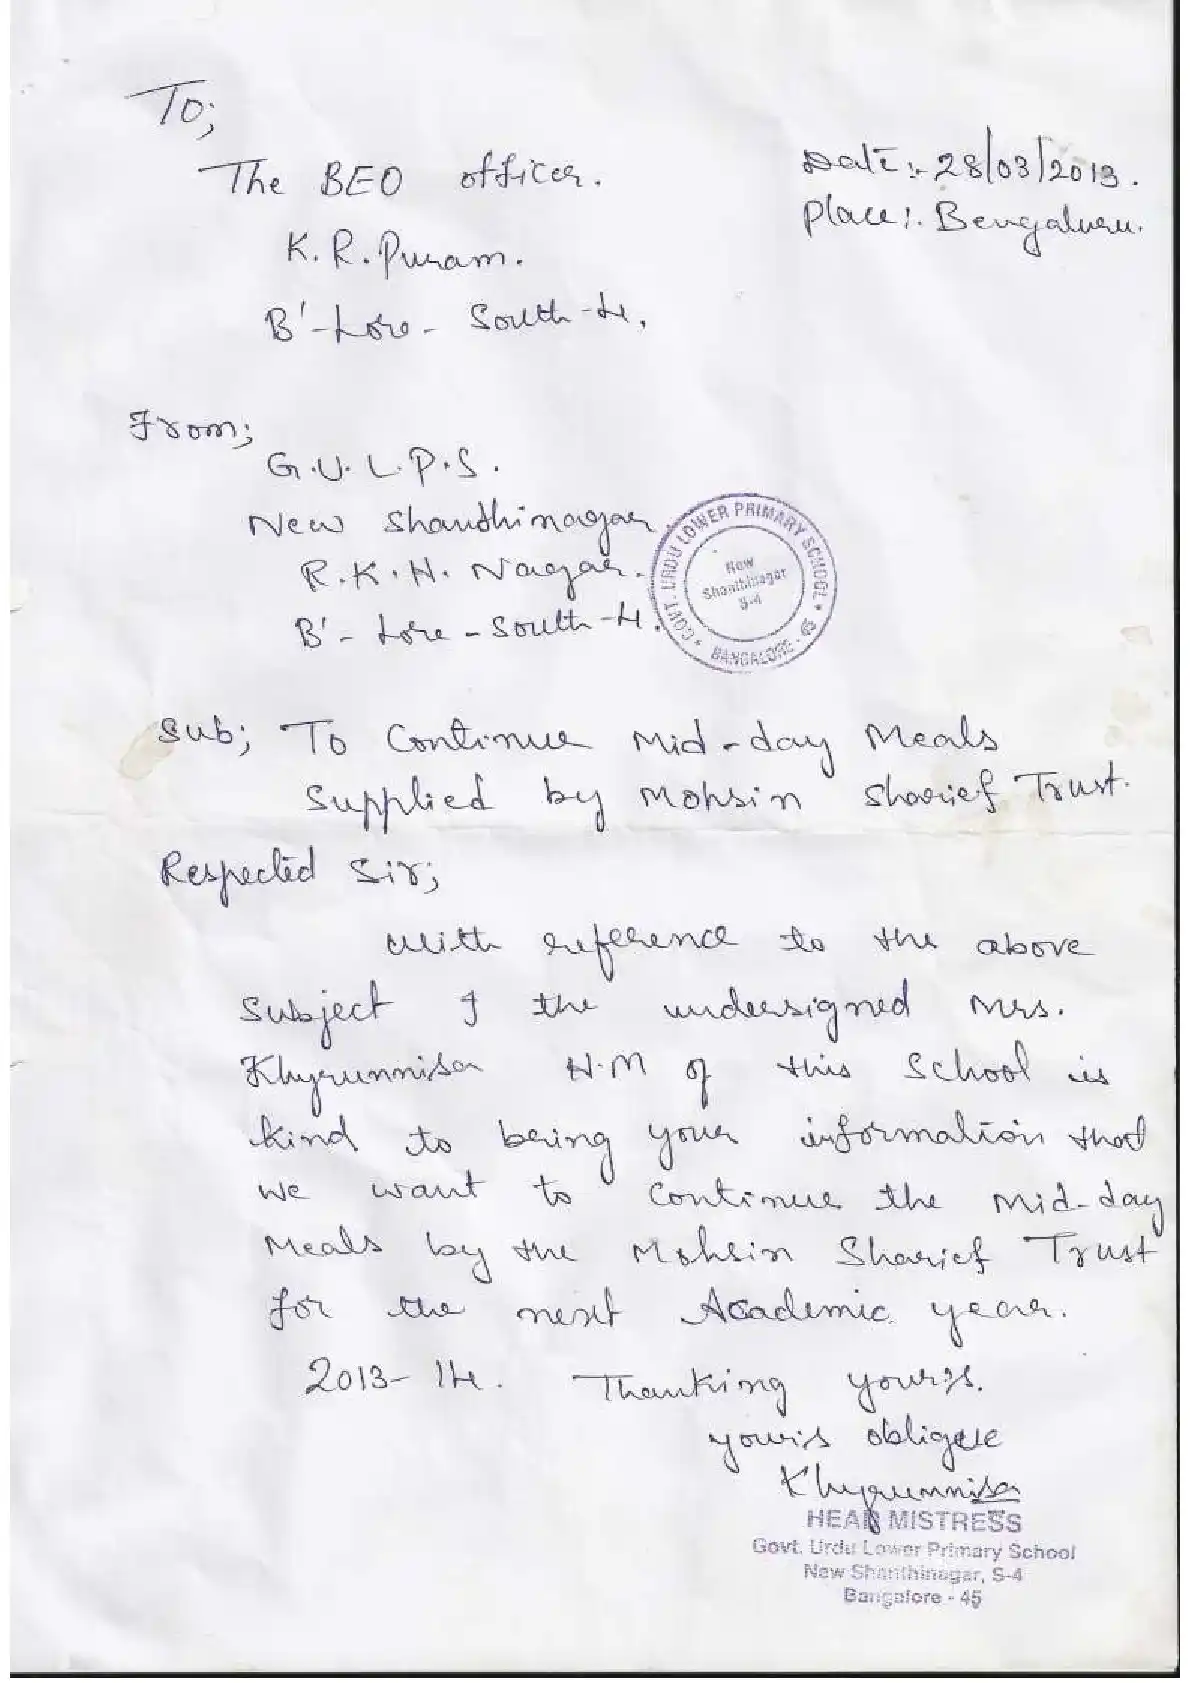 To;
The BEO officer.
Date:- 28/03/2013.
Place:. Bengaluru.
K.R.Puram.
B'-Lore- South-4.
From;
G.U.L.P.S.
New Shandhinagar
R.K.H. Nagar.
B'- Lore - South-4.
GOVT. URDU LOWER PRIMARY SCHOOL
New
Shanthinagar
S-4
BANGALORE -
Sub; To Continue Mid-day Meals
Supplied by Mohsin Sharief Trust.
Respected Sir;
With reference to the above
Subject I the undersigned Mrs.
Khyrunnisa H.M of this School is
kind to bering your information that
we want to Continue the Mid-day
Meals by the Mohsin Sharief Trust
for the next Academic year.
2013-14. Thanking yours.
yours
Khyrunnisa
HEAD MISTRESS
Govt. Urdu Lower Primary School
New Shanthinagar, S-4
Bangalore - 45